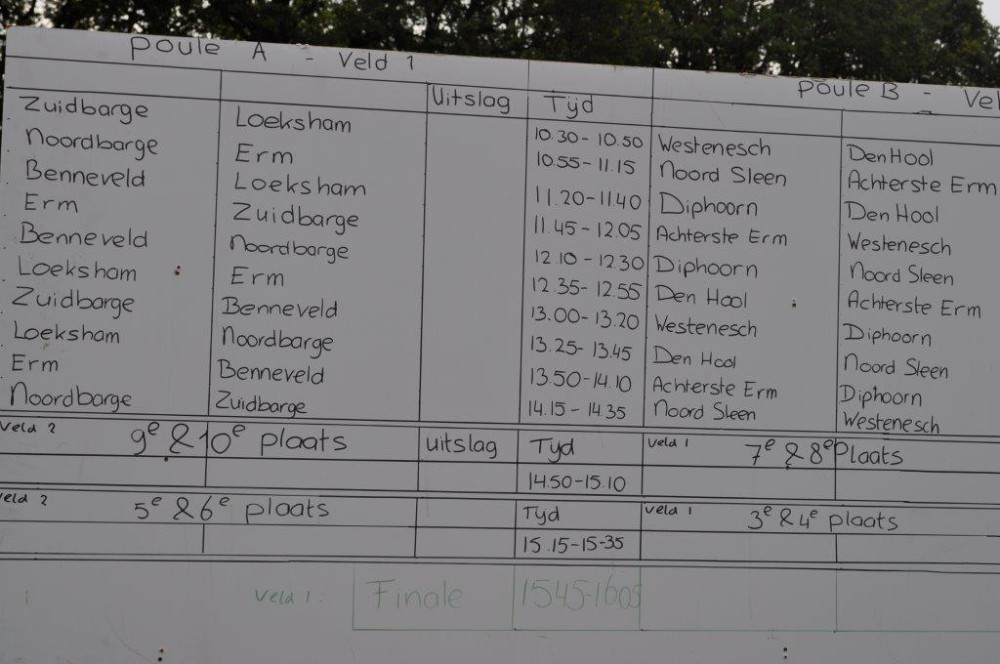 poule A - Veld 1 poule B - Vel
Uitslag Tyd
Zuidbarge Loeksham 10.30 - 10.50 Westenesch Den Hool
Noordbarge Erm 10.55 - 11.15 Noord Sleen Achterste Erm
Benneveld Loeksham 11.20 - 11.40 Diphoorn Den Hool
Erm Zuidbarge 11.45 - 12.05 Achterste Erm Westenesch
Benneveld Noordbarge 12.10 - 12.30 Diphoorn Noord Sleen
Loeksham Erm 12.35 - 12.55 Den Hool Achterste Erm
Zuidbarge Benneveld 13.00 - 13.20 Westenesch Diphoorn
Loeksham Noordbarge 13.25 - 13.45 Den Hool Noord Sleen
Erm Benneveld 13.50 - 14.10 Achterste Erm Diphoorn
Noordbarge Zuidbarge 14.15 - 14.35 Noord Sleen Westenesch
Veld 2 9e & 10e plaats uitslag Tyd veld 1 7e & 8e Plaats
14.50 - 15.10
veld 2 5e & 6e plaats Tyd veld 1 3e & 4e plaats
15.15 - 15-35
Veld 1: Finale 1545-1605